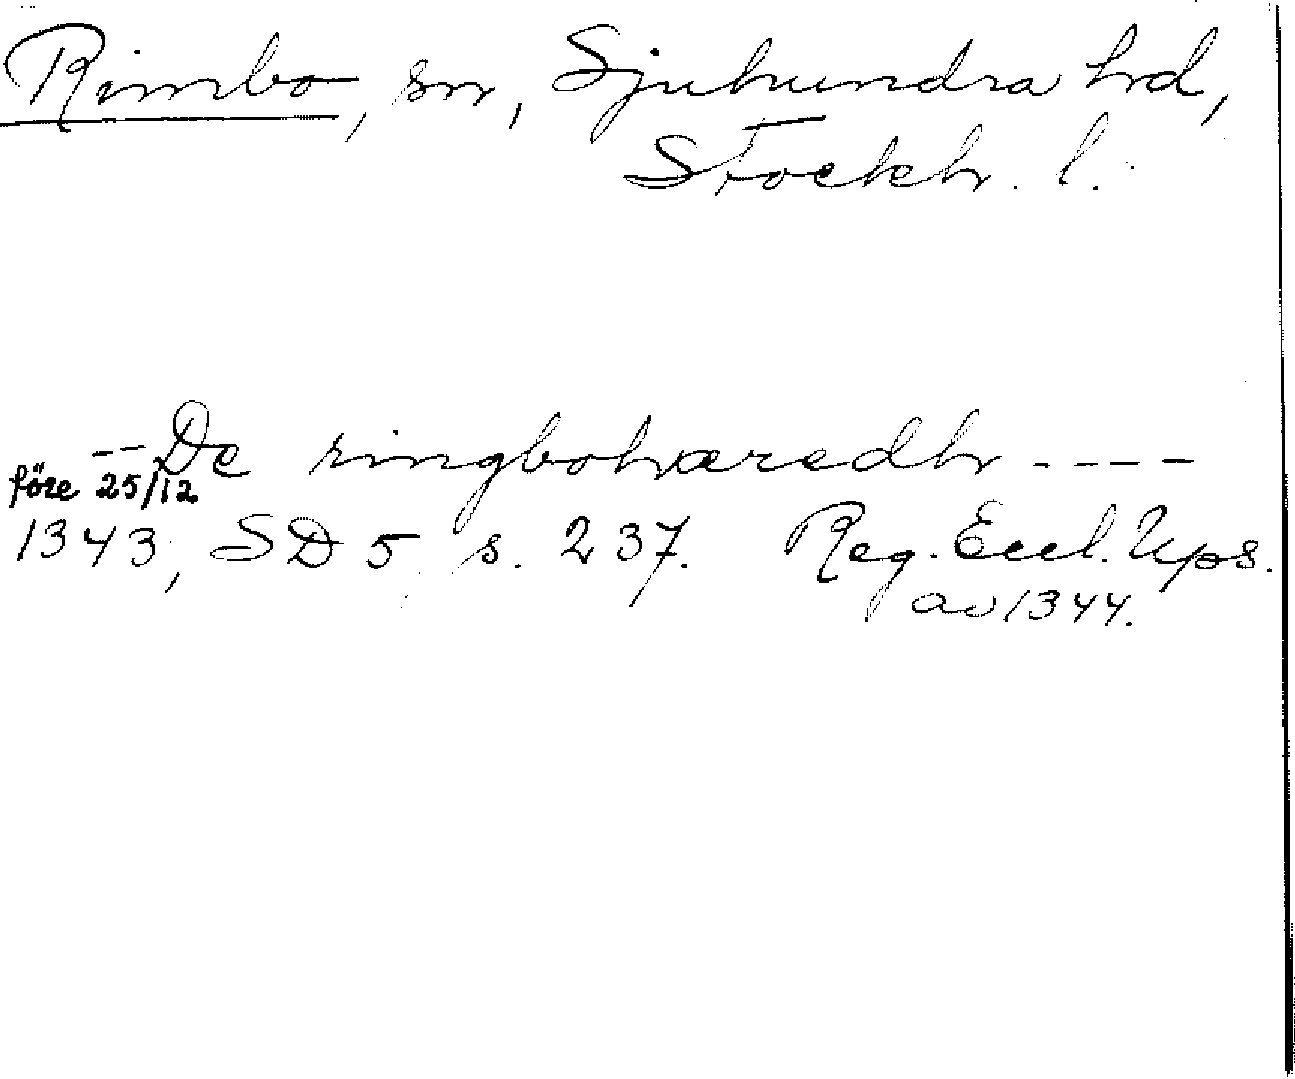 Rimbo, sn, Sjuhundra hrd,
Stockh. l.
-- De ringbohæredh ----
före 25/12
1343, SD 5 s. 237. Reg. Eccl. Ups.
av 1344.